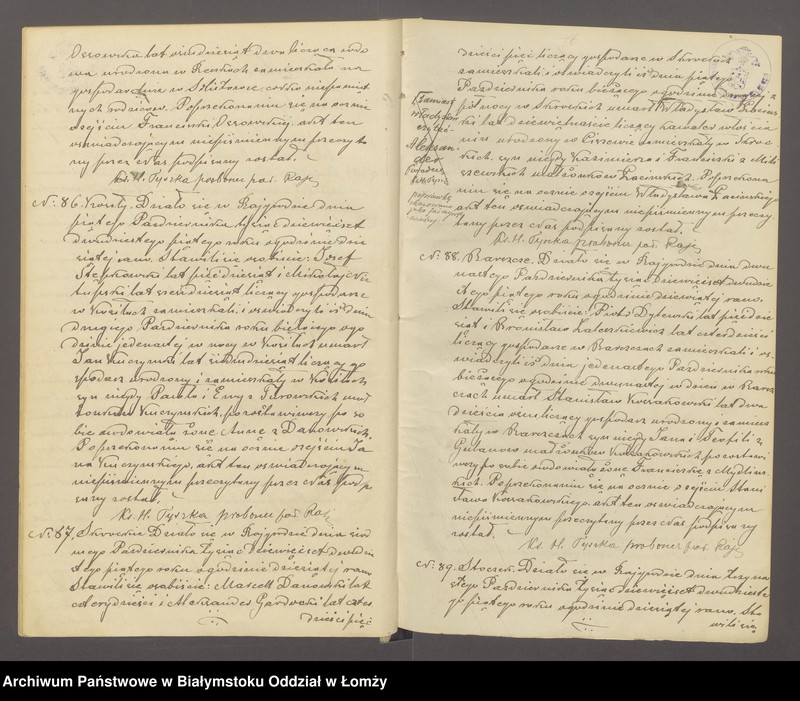 Ossowska lat siedmdziesiąt dwa licząca wdo
wa urodzona w zamieszkała na
gospodarstwie w córka niepamięt
nych rodziców. Po przekonaniu się na ocznie
o zejściu Franciszki Ossowskiej, akt ten
oświadczającym niepiśmiennym przeczyta
ny przez Nas podpisany został.
Ks. H. Pyszka proboszcz par. Rajg
No. 86. Kozły. Działo się w Rajgrodzie dnia
piątego Października tysiąc dziewięćset
dwudziestego piątego roku o godzinie dzie
siątej rano. Stawili się osobiście: Józef
Stepkowski lat pięćdziesiąt i Mikołaj
lat sześćdziesiąt liczący gospodarze
w zamieszkali, i oświadczyli iż dnia
drugiego Października roku bieżącego o go
dzinie jedenastej w nocy w umarł
Jan Kuczyński lat siedmdziesiąt liczący go
spodarz urodzony i zamieszkały w
syn niegdy Pawła i Ewy z mał
żonków Kuczyńskich, pozostawiwszy po so
bie owdowiałą żonę Annę z Danowskich.
Po przekonaniu się na ocznie o zejściu Ja
na Kuczyńskiego, akt ten oświadczającym
niepiśmiennym przeczytany przez Nas podpi
sany został.
Ks. H. Pyszka proboszcz par. Raj
No. 87. Skrockie. Działo się w Rajgrodzie dnia siód
mego Października tysiąc dziewięćset dwudzie
stego piątego roku o godzinie dziesiątej rano
Stawili się osobiście: Marceli Danowski lat
czterydzieści i Aleksander Gardocki lat czter
dzieści pięć
dzieści pięć liczący gospodarze w Skrockich
zamieszkali i oświadczyli iż dnia piątego
Października roku bieżącego o godzinie
północy w Skrockich umarł Władysław
ki lat dziewiętnaście liczący kawaler włościa
nin urodzony w zamieszkały w Skroc
kich, syn niegdy Kazimierza i Franciszki z
małżonków Po przekona
niu się na ocznie o zejściu Władysława
akt ten oświadczającym niepiśmiennym przeczy
tany przez Nas podpisany został.
Ks. H. Pyszka proboszcz par. Rajg
Zamiast
Władysław
czytać
Aleksan
der
No. 88. Barszcze. Działo się w Rajgrodzie dnia dwu
nastego Października tysiąc dziewięćset dwudzie
stego piątego roku o godzinie dziewiątej rano.
Stawili się osobiście: Piotr Dylewski lat pięćdzie
siąt i Bronisław Zaleskiewicz lat czterdzieści
liczący gospodarze w Barszczach zamieszkali i oś
wiadczyli iż dnia jedenastego Października roku
bieżącego o godzinie dwunastej w dzień w Barsz
czach umarł Stanisław Kossakowski lat dwa
dzieścia liczący gospodarz urodzony i zamiesz
kały w Barszczach syn niegdy Jana i Teofili z
małżonków Kossakowskich, pozostawi
wszy po sobie owdowiałą żonę Franciszkę z
kich. Po przekonaniu się na ocznie o zejściu Stani
sława Kossakowskiego, akt ten oświadczającym
niepiśmiennym przeczytany przez Nas podpisany
został.
Ks. H. Pyszka proboszcz par. Rajg
No. 89. Stoczek. Działo się w Rajgrodzie dnia trzyna
stego Października tysiąc dziewięćset dwudzieste
go piątego roku o godzinie dziesiątej rano. Sta
wili się
Archiwum Państwowe w Białymstoku Oddział w Łomży